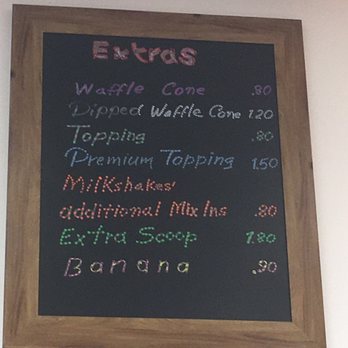 Extras
Waffle Cone .80
Dipped Waffle Cone 1.20
Topping .80
Premium Topping 1.50
Milkshakes'
additional Mix Ins .80
Extra Scoop 1.80
Banana .90